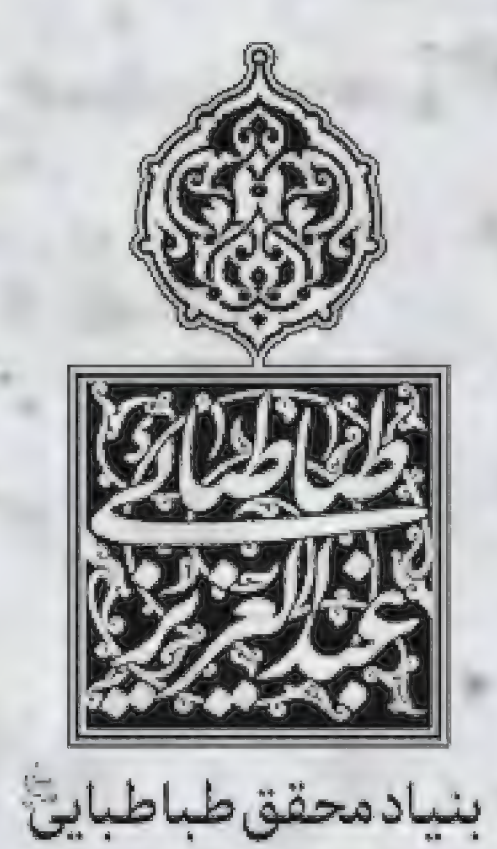 عبدالعزیز
طباطبائی
بنیاد محقق طباطبایی